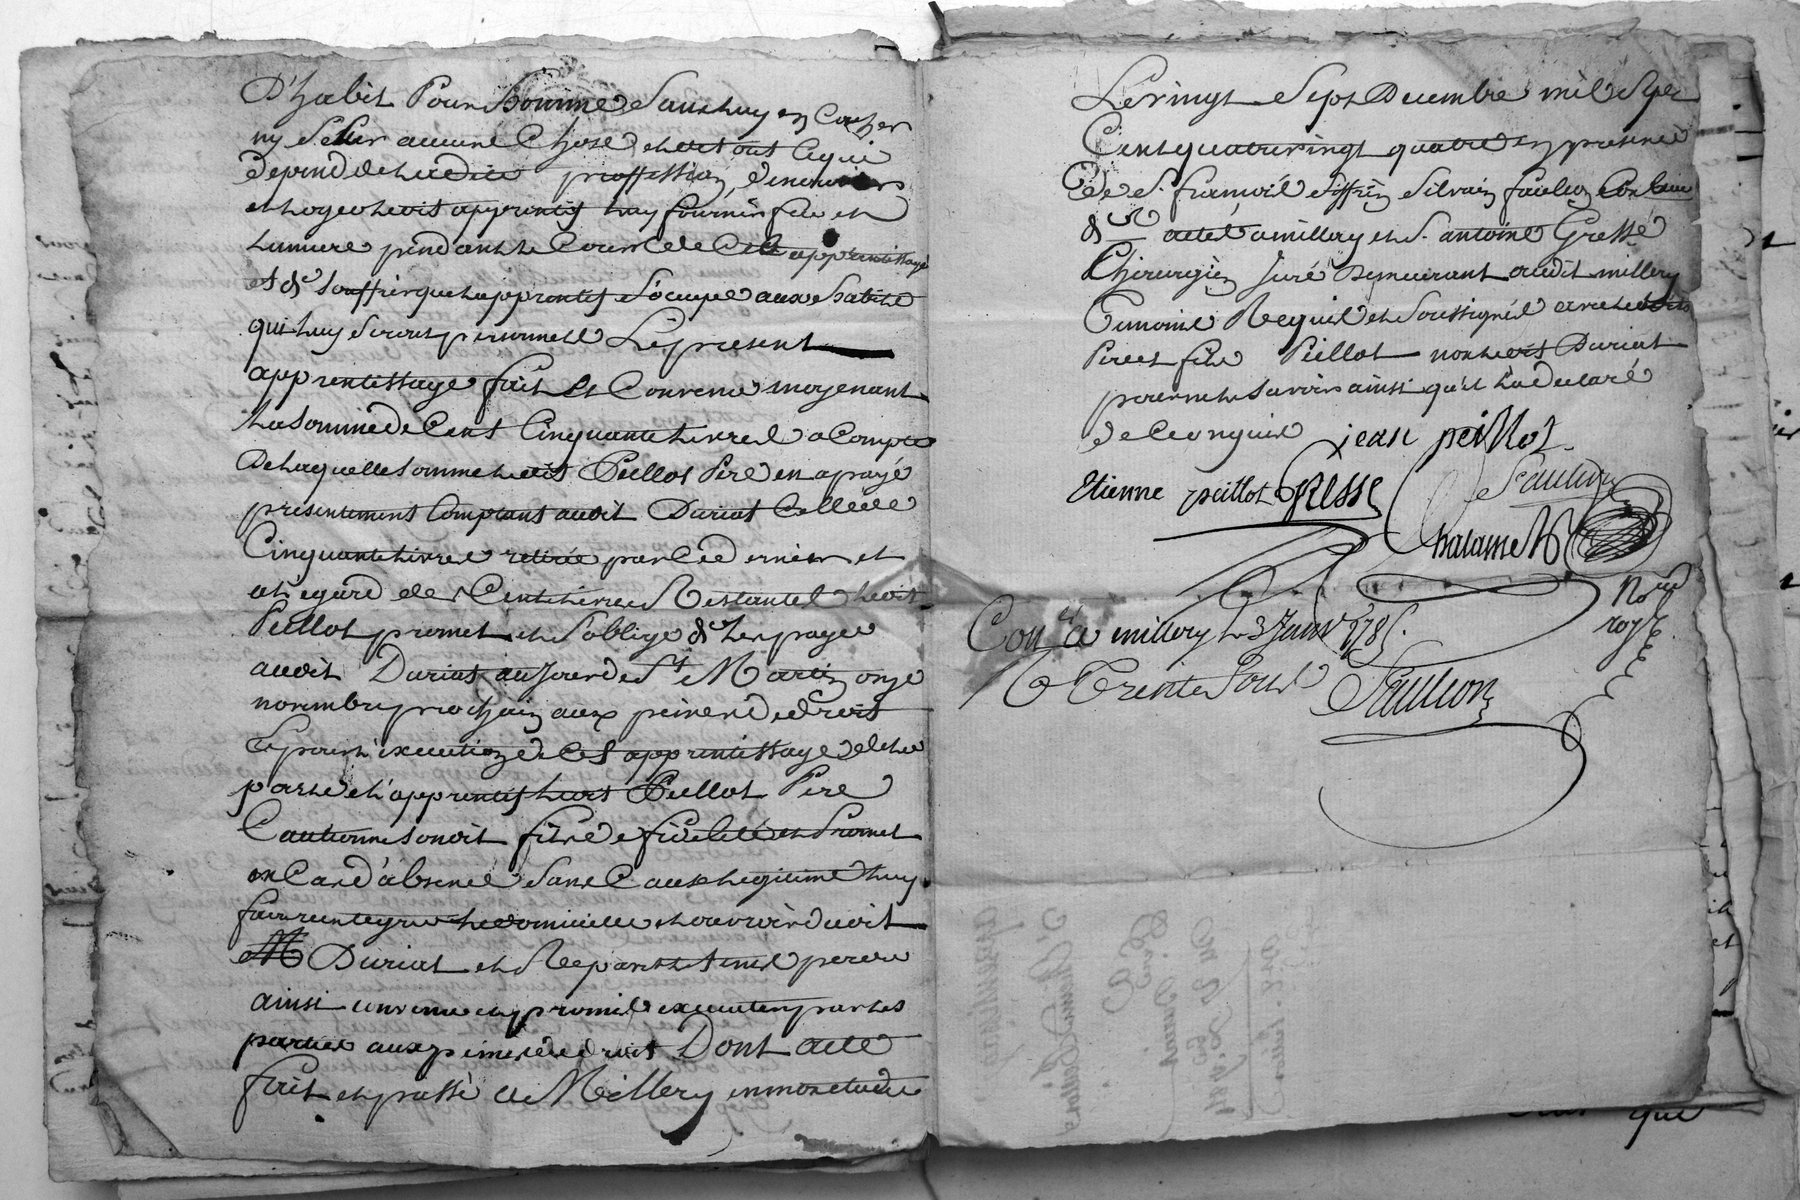 D'habit Pour homme Sans luy en Cacher
ny Seler aucune Chose et de tout Ce qui
depend de ladite proffession, de nourrir
et loger ledit apprentif luy fournir feu et
lumiere pendant le Cours de Cet apprentissage
et de souffrir que l'apprentif s'ocupe aux habits
qui luy seront personnels Le present
apprentissage fait et Convenu moyenant
La somme de Cent Cinquante Livres a Compte
De laquelle somme ledit Peillot Pere en a payé
presentement Comptant audit Duriat Celle de
Cinquante livres retirée par Ce dernier et
a l'egard des Cent livres Restantes ledit
Peillot promet et s'oblige de les payer
audit Duriat au Jour de St Martin onze
novembre prochain aux peines de droit
Et pour l'execution de Cet apprentissage de la
part de l'apprentif ledit Peillot Pere
Cautionne sondit fils de fidelité et Promet
en Cas d'absence Sans Cause legitime luy
faire reintegrer le domicille et ouvroir dudit
Duriat et Reparer le tems perdu
ainsi convenu et promis executer par les
parties aux peines de droit Dont acte
fait et passé a Millery en mon etude
Le vingt Sept Decembre mil Sept
Cent quatre vingt quatre en presence
de S. françois Siffrein Silvain faulion Controleur
des actes a millery et S. antoine Gresse
Chirurgien Juré Demeurant audit millery
Temoins Requis et soussignés avec lesdits
Pere et fils Peillot non ledit Duriat
pour ne le savoir ainsi qu'il l'a declaré
de Ce enquis jean peillot
Etienne peillot Gresse Faulion
Chalamel
No.re
roy.l
Con.lé a millery le 3 Janv. 1785.
R Trente Sous Faulion